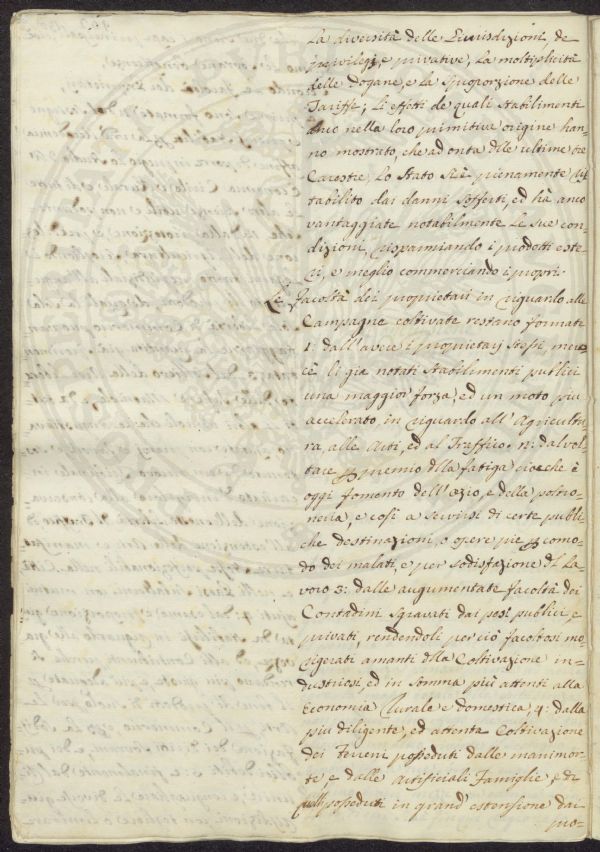 La diversità delle Giurisdizioni de
privilegj, e privative, La moltiplicità
delle dogane, e la sproporzione delle
Tariffe, Li effetti de quali Stabilimenti
anco nella loro primitiva origine han
no mostrato, che ad onta delle ultime tre
Carestie, Lo Stato si è pienamente ris
tabilito dai danni sofferti, ed hà anco
vantaggiate notabilmente le sue con
dizioni, risparmiando i prodotti este
ri, e meglio commerciando i propri.
Le facoltà dei proprietarij in riguardo alle
Campagne coltivate restano formate
1: dall'avere i proprietarj stessi, mer
cè li già notati Stabilimenti publici
una maggior forza, ed un moto piu
accelerato in riguardo all'Agricoltu
ra, alle Arti, ed al Traffico. 2: dal vol
tare p premio della fatiga ciocche è
oggi fomento dell'ozio, e della poltro
neria, e così a servirsi di certe publi
che destinazioni, o opere pie p como
do dei malati, e per sodisfazione del La
voro 3: dalle augumentate facoltà dei
Contadini sgravati dai pesi publici, e
privati, rendendoli perciò facoltosi mo
rigerati amanti della Coltivazione in
dustriosi, ed in somma più attenti alla
Economia Rurale e domestica, 4: dalla
piu diligente, ed attenta Coltivazione
dei Terreni posseduti dalle manimor
te, e dalle Artificiali Famiglie, e di
quelli posseduti in grand'estensione dai
pro-